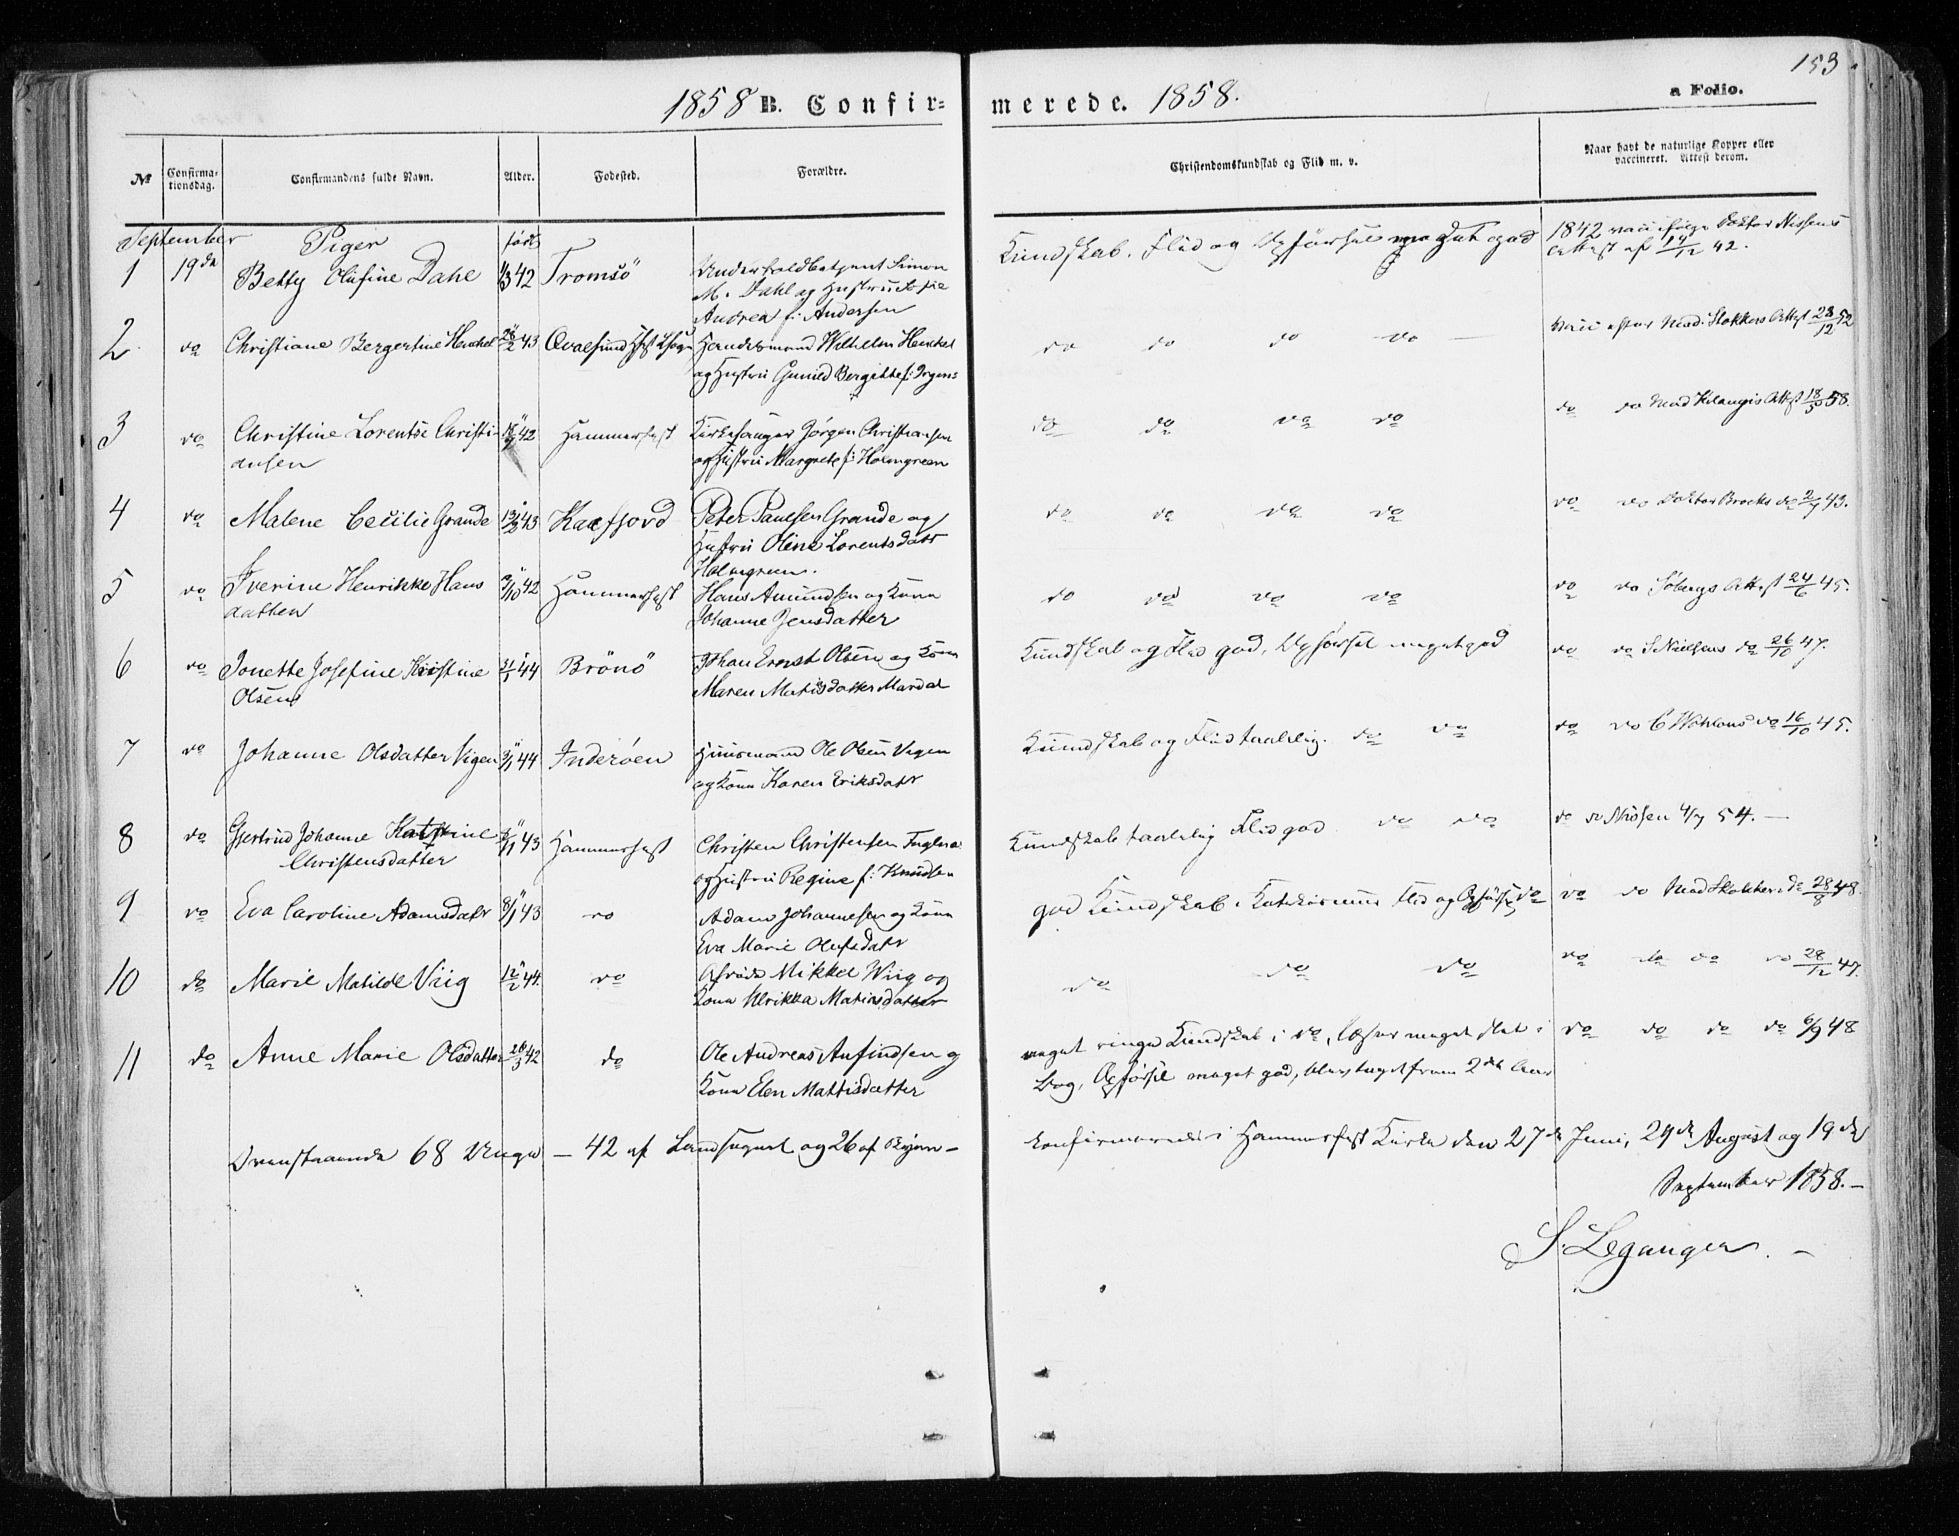 153
1858 B. Confir= merede. 1858.
a Folio.
№ Confirma-tionsdag. Confirmandens fulde Navn. Alder. Fødested. Forældre. Christendomskundskab og Flid m. v. Naar havt de naturlige Kopper eller vaccineret. Attest derom.
September Piger født
1 19de Betty Olufine Dahl 1/3 42 Tromsö Underfoldbetjent Simon
M. Dahl og Hustru
Andrea f: Andersen
Kundskab, Flid og Opførsel meget god
1842 vacc ifølge Doktor Nissens
Attest af 14/12 42.
2 do Christiane Bergertine Henckel 28/2 43 Qvalsund Wilhelm Henckel
og Hustru Gunild Bergitte f: Jrgens:
do do do do —
vacc efter Mad: Stokkes Attest 28/12 52
3 do Christine Lorentse Christi-
ansen
42 Hammerfest Kirkesanger Jørgen Christiansen
og Hustru Margrete f: Holmgreen
do do do do
do do Mad Attest 18/5 58.
4 do Malene Cecilie Grande 13/2 43 Kaafjord Peter Paulsen Grande og
Hustru Oline Lorentsdatr
Holmgreen.
do do do do
do do Doktor Brocks do 2/7 43.
5 do Iverine Henrikke Hans
datter
/10 42 Hammerfest Hans Amundsen og Kona
Johanne Jensdatter
do do do do
do do Sobergs Attest 24/6 45.
6 do Jonette Josefine Kristine
Olsen
21/1 44 Brönö Johan Ernst Olsen og Kona
Maren Matisdatter
Kundskab og Flid god, Opførsel meget god
do do S. Nielsens do 26/10 47.
7 do Johanne Olsdatter Vigen /1 44 Inderøen Huusmand Ole Olsen Vigen
og Kona Karen Eriksdatr
Kundskab og Flid taalelig. do do
do do C do 16/10 45.
8 do Gjertrud Johanne Katrine
Christensdatter
/1 43 Hammerfest Christen Christensen
og Hustru Regine f: Knudsen
Kundskab taalelig Flid god do do
do do 4/7 54. —
9 do Eva Caroline Adamsdatr 8/1 43 do Adam Johannesen og Kona
Eva Marie Olufsdatr
god Kundskab i Katekismus Flid og Opførsel do
do do Mad Stokkes do 28/8 48.
10 do Marie Matilde Viig 12/2 44. do Mikkel Wiig og
Kona Ulrikka Matiasdatter
do do do
do do do do 28/12 47.
11 do Anne Marie Olsdatter 26/3 42 do Ole Andreas Anfindsen og
Kona Elen Mattisdatter
meget ringe Kundskab i do, læser meget slet i
Bog, Opførsel meget god, blev taget frem 2det Aar
do do do do 6/9 48
Ovenstaaende 68 Unge — 42 af Landsognet og 26 af Byen — konfirmerede i Hammerfest Kirke den 27de Juni, 29de August og 19de
September 1858. —
S. Leganger. —